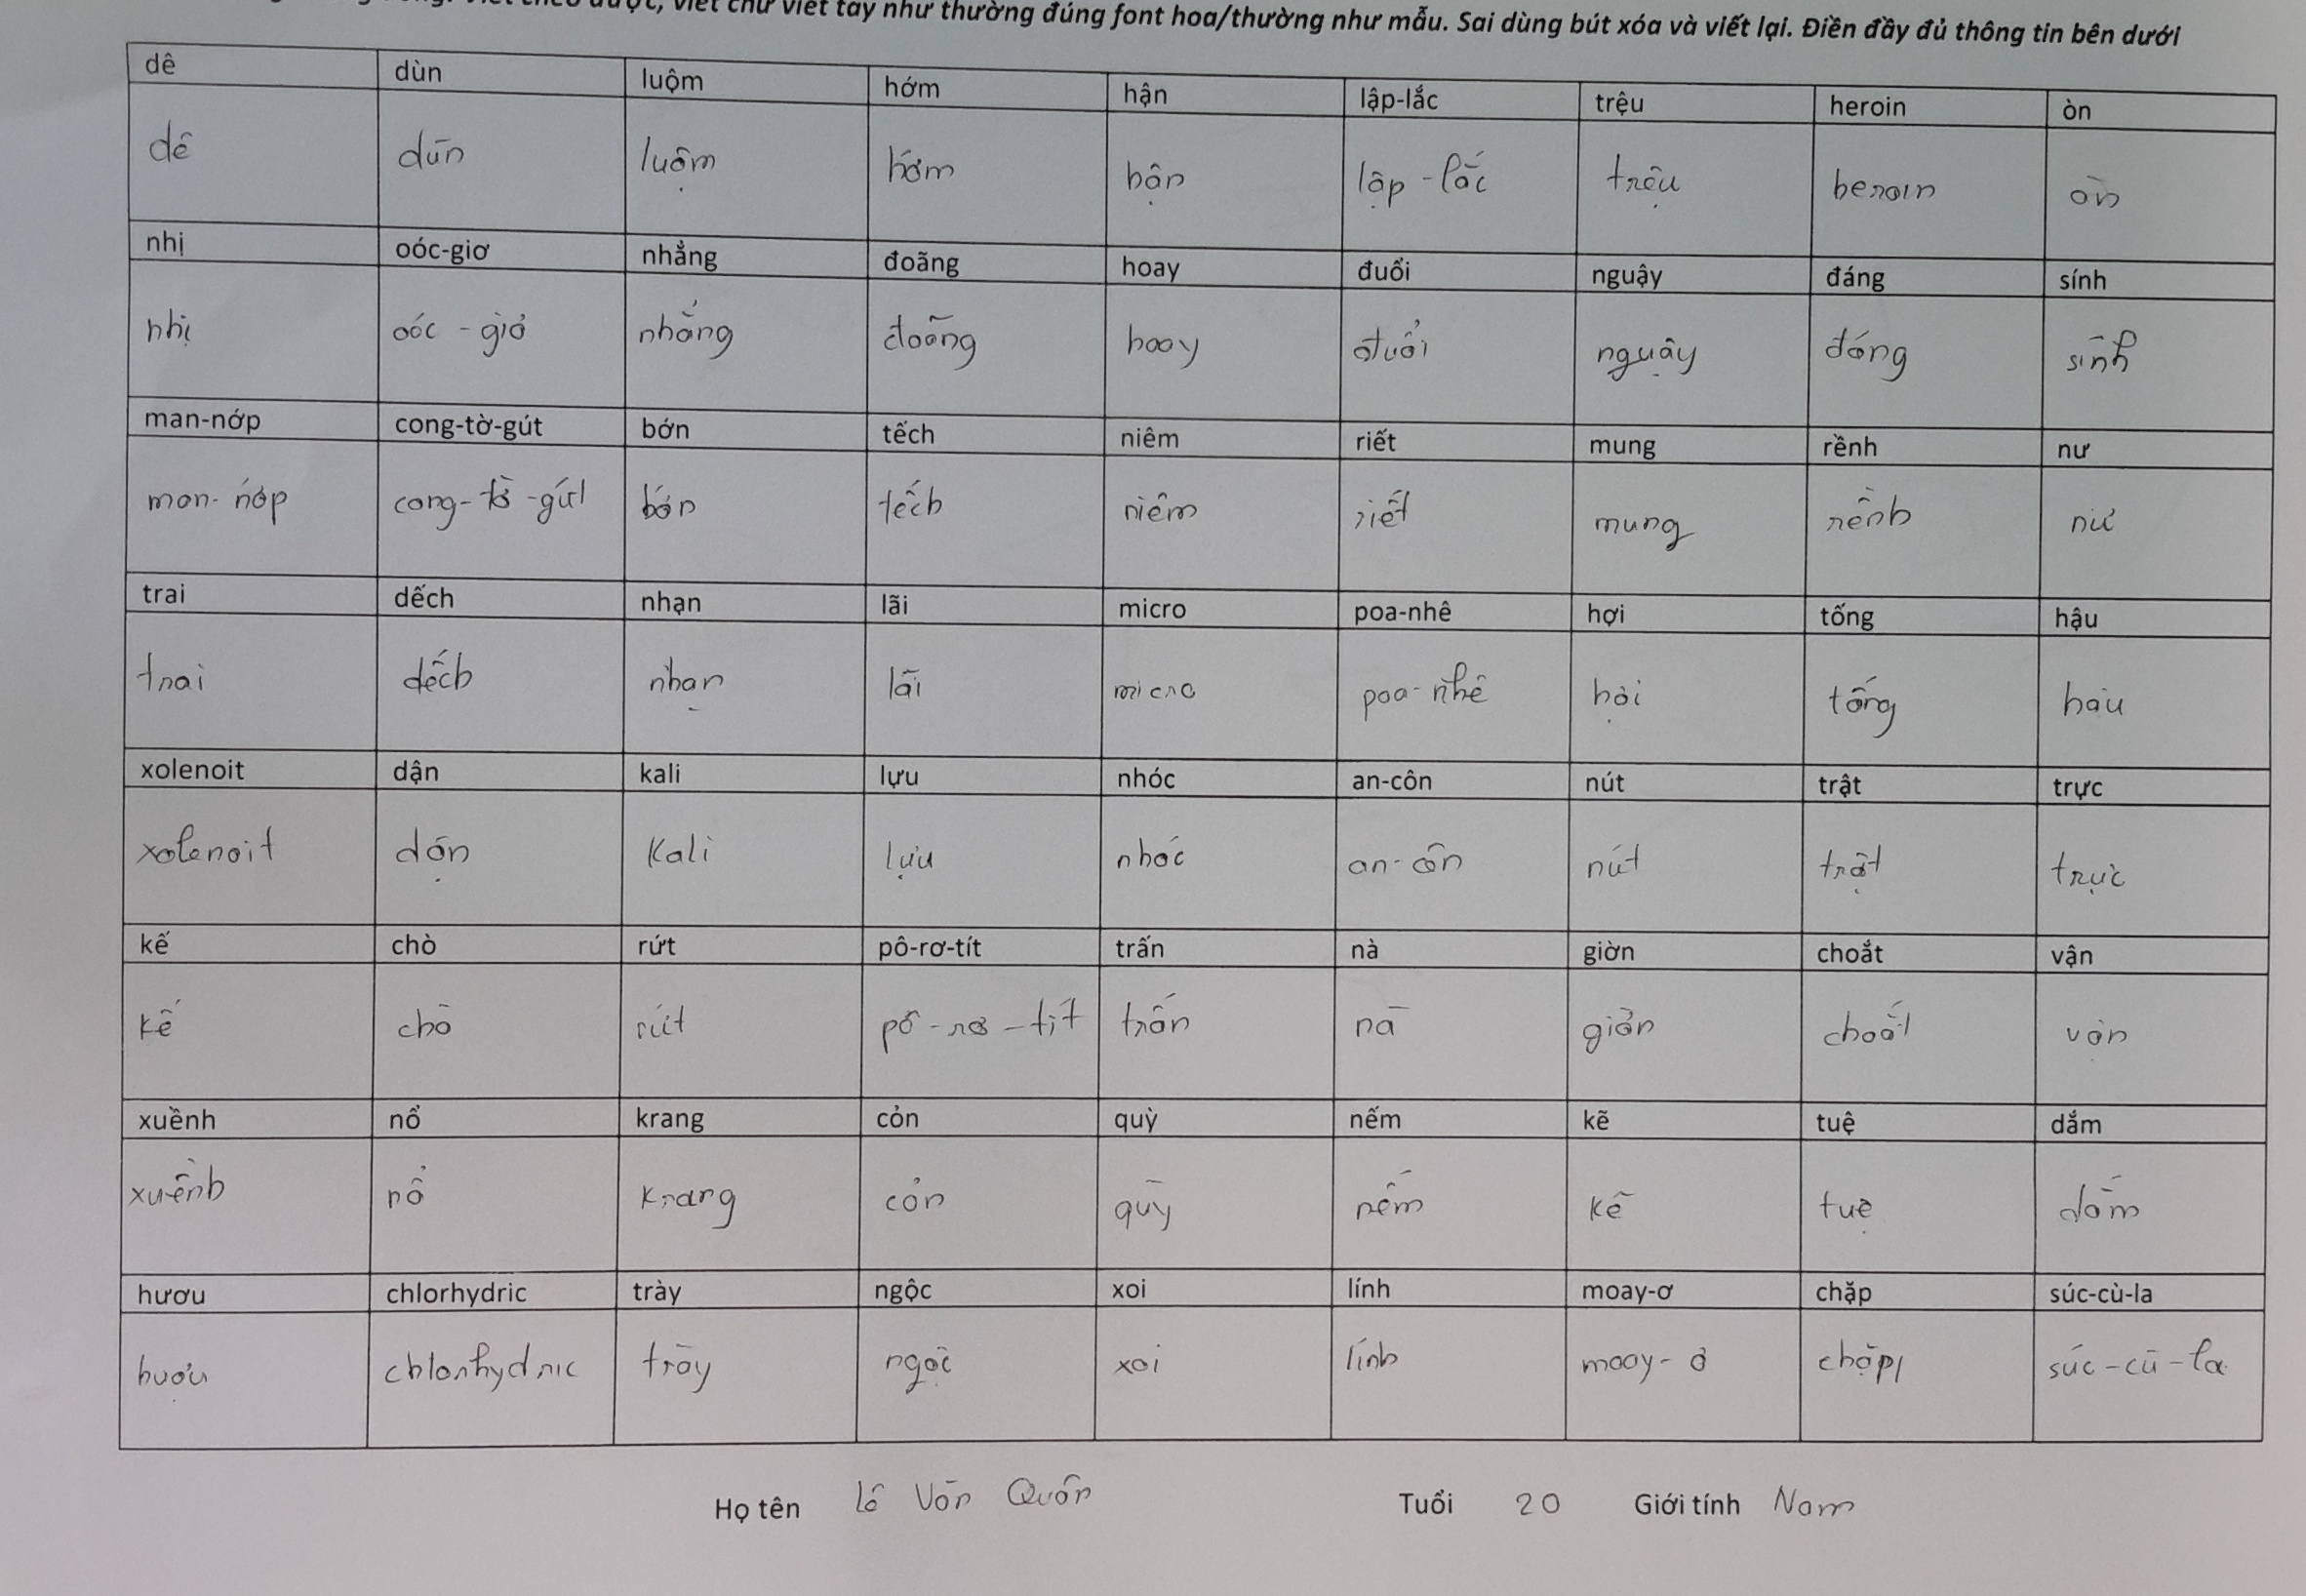 viết chữ viết tay như thường đúng font hoa/thường như mẫu. Sai dùng bút xóa và viết lại. Điền đầy đủ thông tin bên dưới
dê dùn luộm hớm hận lập-lắc trệu heroin òn
dê dùn luộm hớm hận lập-lắc trệu heroin òn
nhị oóc-giơ nhằng đoãng hoay đuổi nguậy đáng sính
nhị oóc-giơ nhằng đoãng hoay đuổi nguậy đáng sính
man-nớp cong-tờ-gút bớn tếch niêm riết mung rềnh nư
man-nớp cong-tờ-gút bớn tếch niêm riết mung rềnh nư
trai dếch nhạn lãi micro poa-nhê hợi tống hậu
trai dếch nhạn lãi micro poa-nhê hợi tống hậu
xolenoit dận kali lựu nhóc an-côn nút trật trực
xolenoit dận kali lựu nhóc an-côn nút trật trực
kế chò rứt pô-rơ-tít trấn nà giờn choắt vận
kế chò rứt pô-rơ-tít trấn nà giờn choắt vận
xuềnh nổ krang cỏn quỳ nếm kẽ tuệ dắm
xuềnh nổ krang cỏn quỳ nếm kẽ tuệ dắm
hươu chlorhydric trày ngộc xoi lính moay-ơ chặp súc-cù-la
hươu chlorhydric trày ngộc xoi lính moay-ơ chặp súc-cù-la
Họ tên Lê Văn Quân Tuổi 20 Giới tính Nam